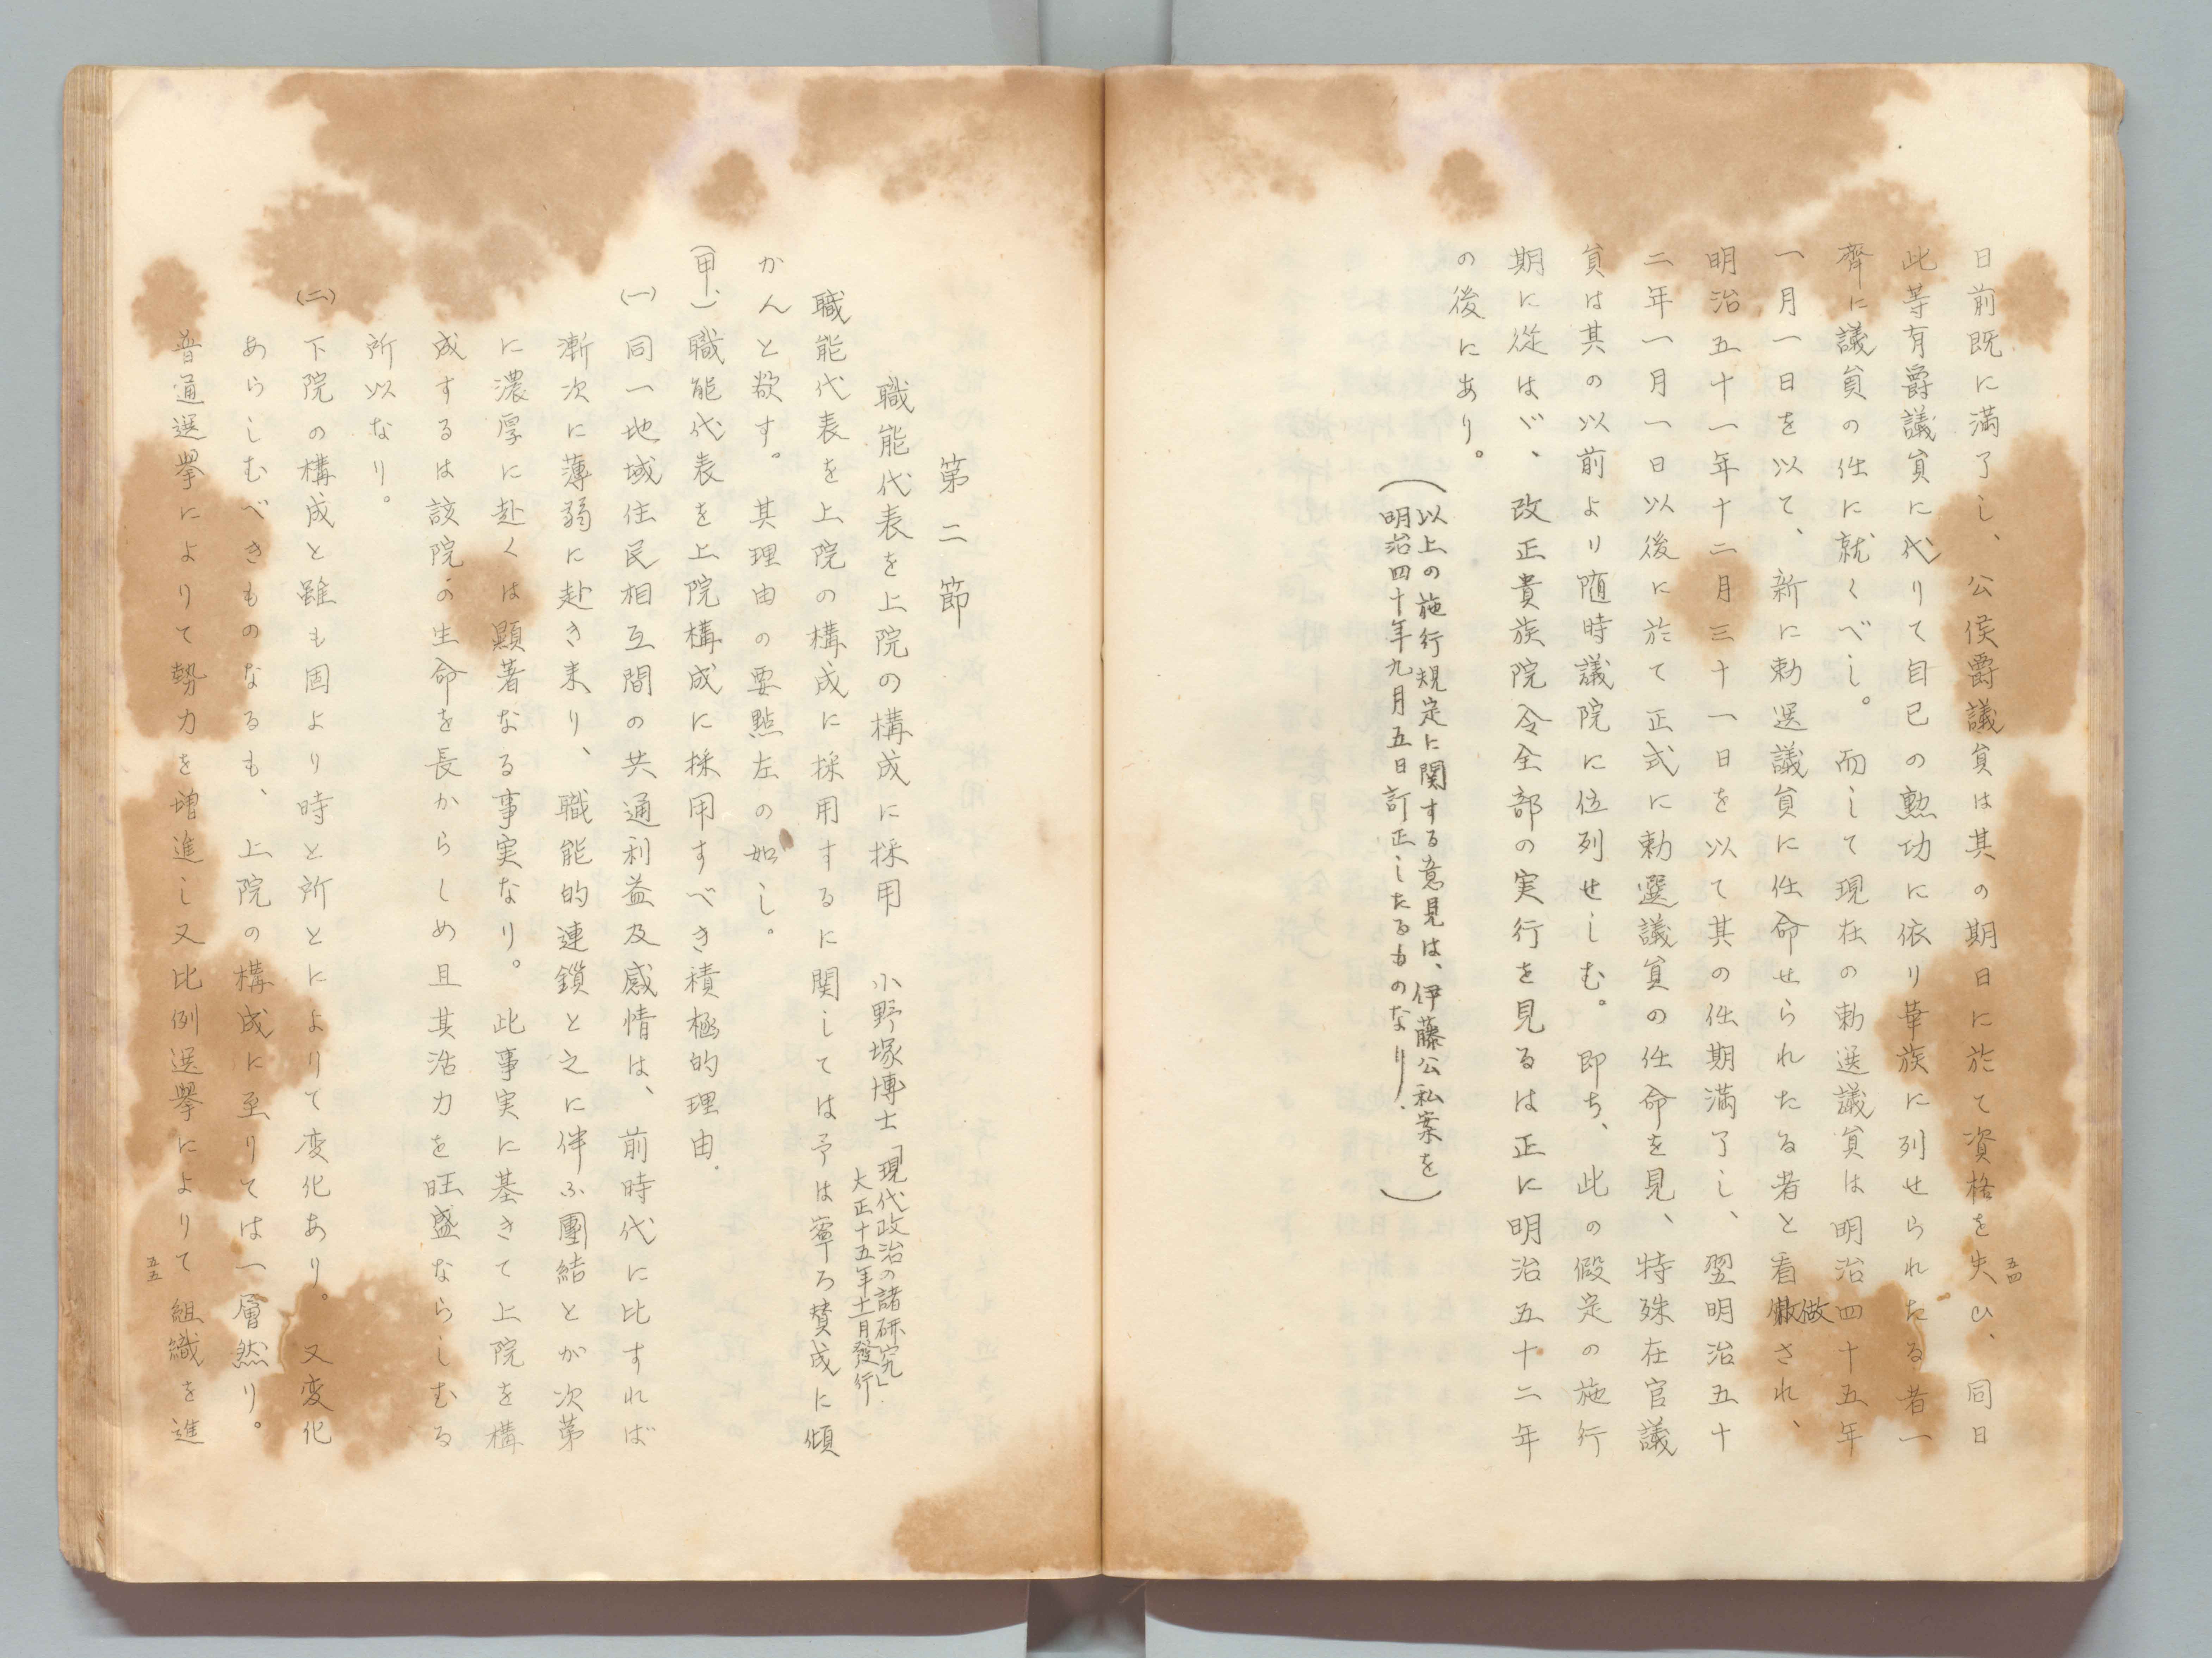 日前既に満了し、公侯爵議員は其の期日に於て資格を失ひ、同日
此等有爵議員に代りて自己の勲功に依り華族に列せられたる者一
齊に議員の任に就くべし。而して現在の勅選議員は明治四十五年
一月一日を以て、新に勅選議員に任命せられたる者と看做され、
明治五十一年十二月三十一日を以て其の任期満了し、翌明治五十
二年一月一日以後に於て正式に勅選議員の任命を見、特殊在官議
員は其の以前より随時議院に位列せしむ。即ち、此の假定の施行
期に從はゞ、改正貴族院令全部の実行を見るは正に明治五十二年
の後にあり。
(以上の施行規定に関する意見は、伊藤公私案を
明治四十年九月五日訂正したるものなり.)
五四
第二節
職能代表を上院の構成に採用 小野塚博士「現代政治の諸研究」
大正十五年十一月發行.
職能代表を上院の構成に採用するに関しては予は寧ろ賛成に傾
かんと欲す。其理由の要點左の如し。
(甲、)職能代表を上院構成に採用すべき積極的理由.
(一)同一地域住民相互間の共通利益及感情は、前時代に比すれば
漸次に薄弱に赴き来り、職能的連鎖と之に伴ふ團結とが次第
に濃厚に赴くは顯著なる事実なり。此事実に基きて上院を構
成するは該院の生命を長からしめ且其活力を旺盛ならしむる
所以なり。
(二)下院の構成と雖も固より時と所とによりて変化あり。又変化
あらしむべきものなるも、上院の構成に至りては一層然り。
普通選挙によりて勢力を増進し又比例選擧によりて組織を進
五五